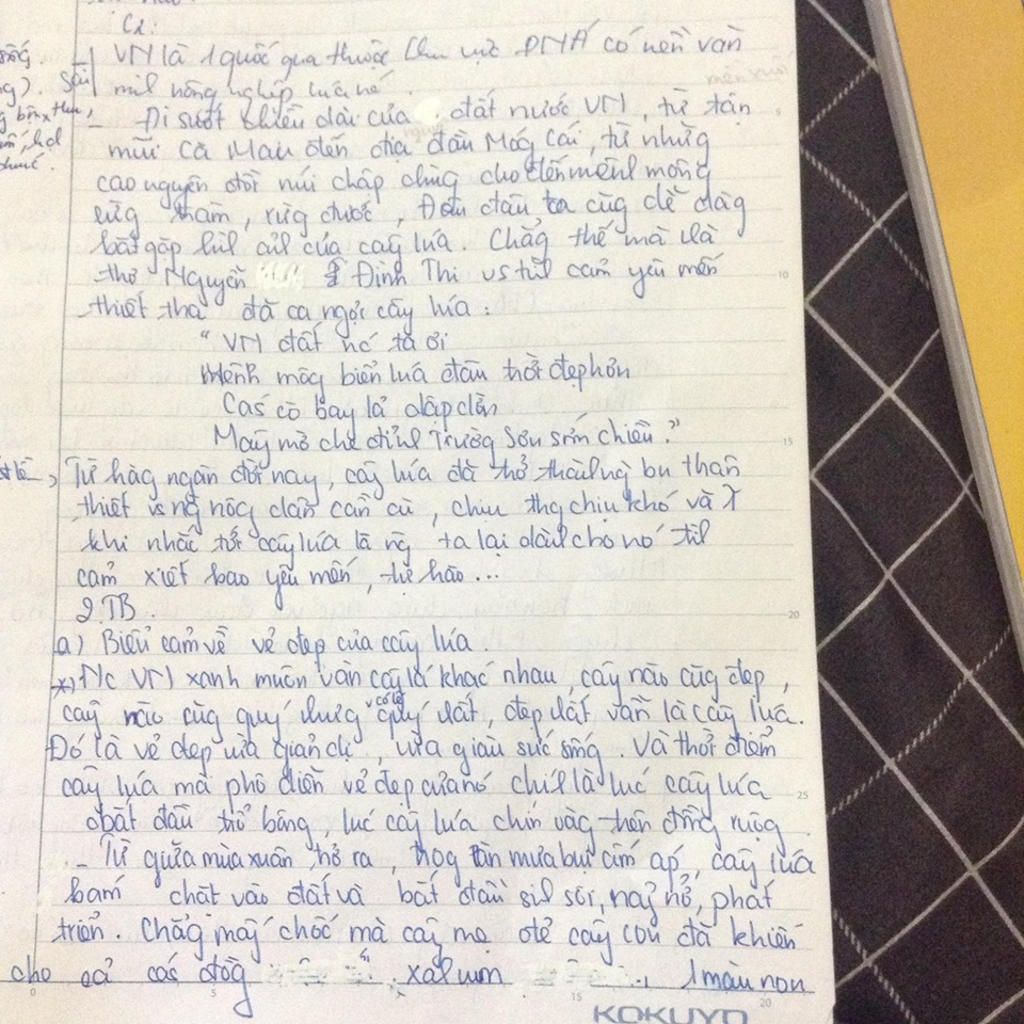 C2:
VN là 1 quốc qua thuộc khu vực ĐNA có nền văn
minh nông nghiệp lúa nc.
- Đi suốt chiều dài của đất nước VN, từ tận
mũi Cà Mau đến địa đầu Móg Cái, từ nhữg
cao nguyên đồi núi chập chùng cho đến mênh mông
rừg tràm, rừg đước, Đâu đâu ta cũg dễ dàg
bắt gặp hình ảnh của cây lúa. Chẳg thế mà nhà
thơ Nguyễn Đình Thi vs tình cảm yêu mến
thiết tha đã ca ngợi cây lúa:
"VN đất nc ta ơi
Mênh môg biển lúa đâu trời đẹp hơn
Cánh cò bay lả dập dờn
Mây mờ che đỉnh Trường Sơn sớm chiều."
Từ hàg ngàn đời nay, cây lúa đã trở thành ng bạn thân
thiết vs ng nôg dân cần cù, chịu thg chịu khó và
khi nhắc tới cây lúa là ng ta lại dành cho nó tình
cảm xiết bao yêu mến, tự hào...
2. TB
a) Biểu cảm về vẻ đẹp của cây lúa.
*) Nc VN xanh muôn vàn cây lá khác nhau, cây nào cũg đẹp,
cây nào cũg quý nhưg có lẽ quý nhất, đẹp nhất vẫn là cây lúa.
Đó là vẻ đẹp vừa giản dị, vừa giàu sức sống. Và thời điểm
cây lúa mà phô diễn vẻ đẹp của nó chính là lúc cây lúa
bắt đầu trổ bông, lúc cây lúa chín vàg trên đồng ruộg.
- Từ giữa mùa xuân trở ra, trog làn mưa bụi ấm áp, cây lúa
bám chặt vào đất và bắt đầu sinh sôi, nảy nở, phát
triển. Chẳg mấy chốc mà cây mẹ đẻ cây con đã khiến
cho cả các đồg xanh mướt 1 màu non
KOKUYO